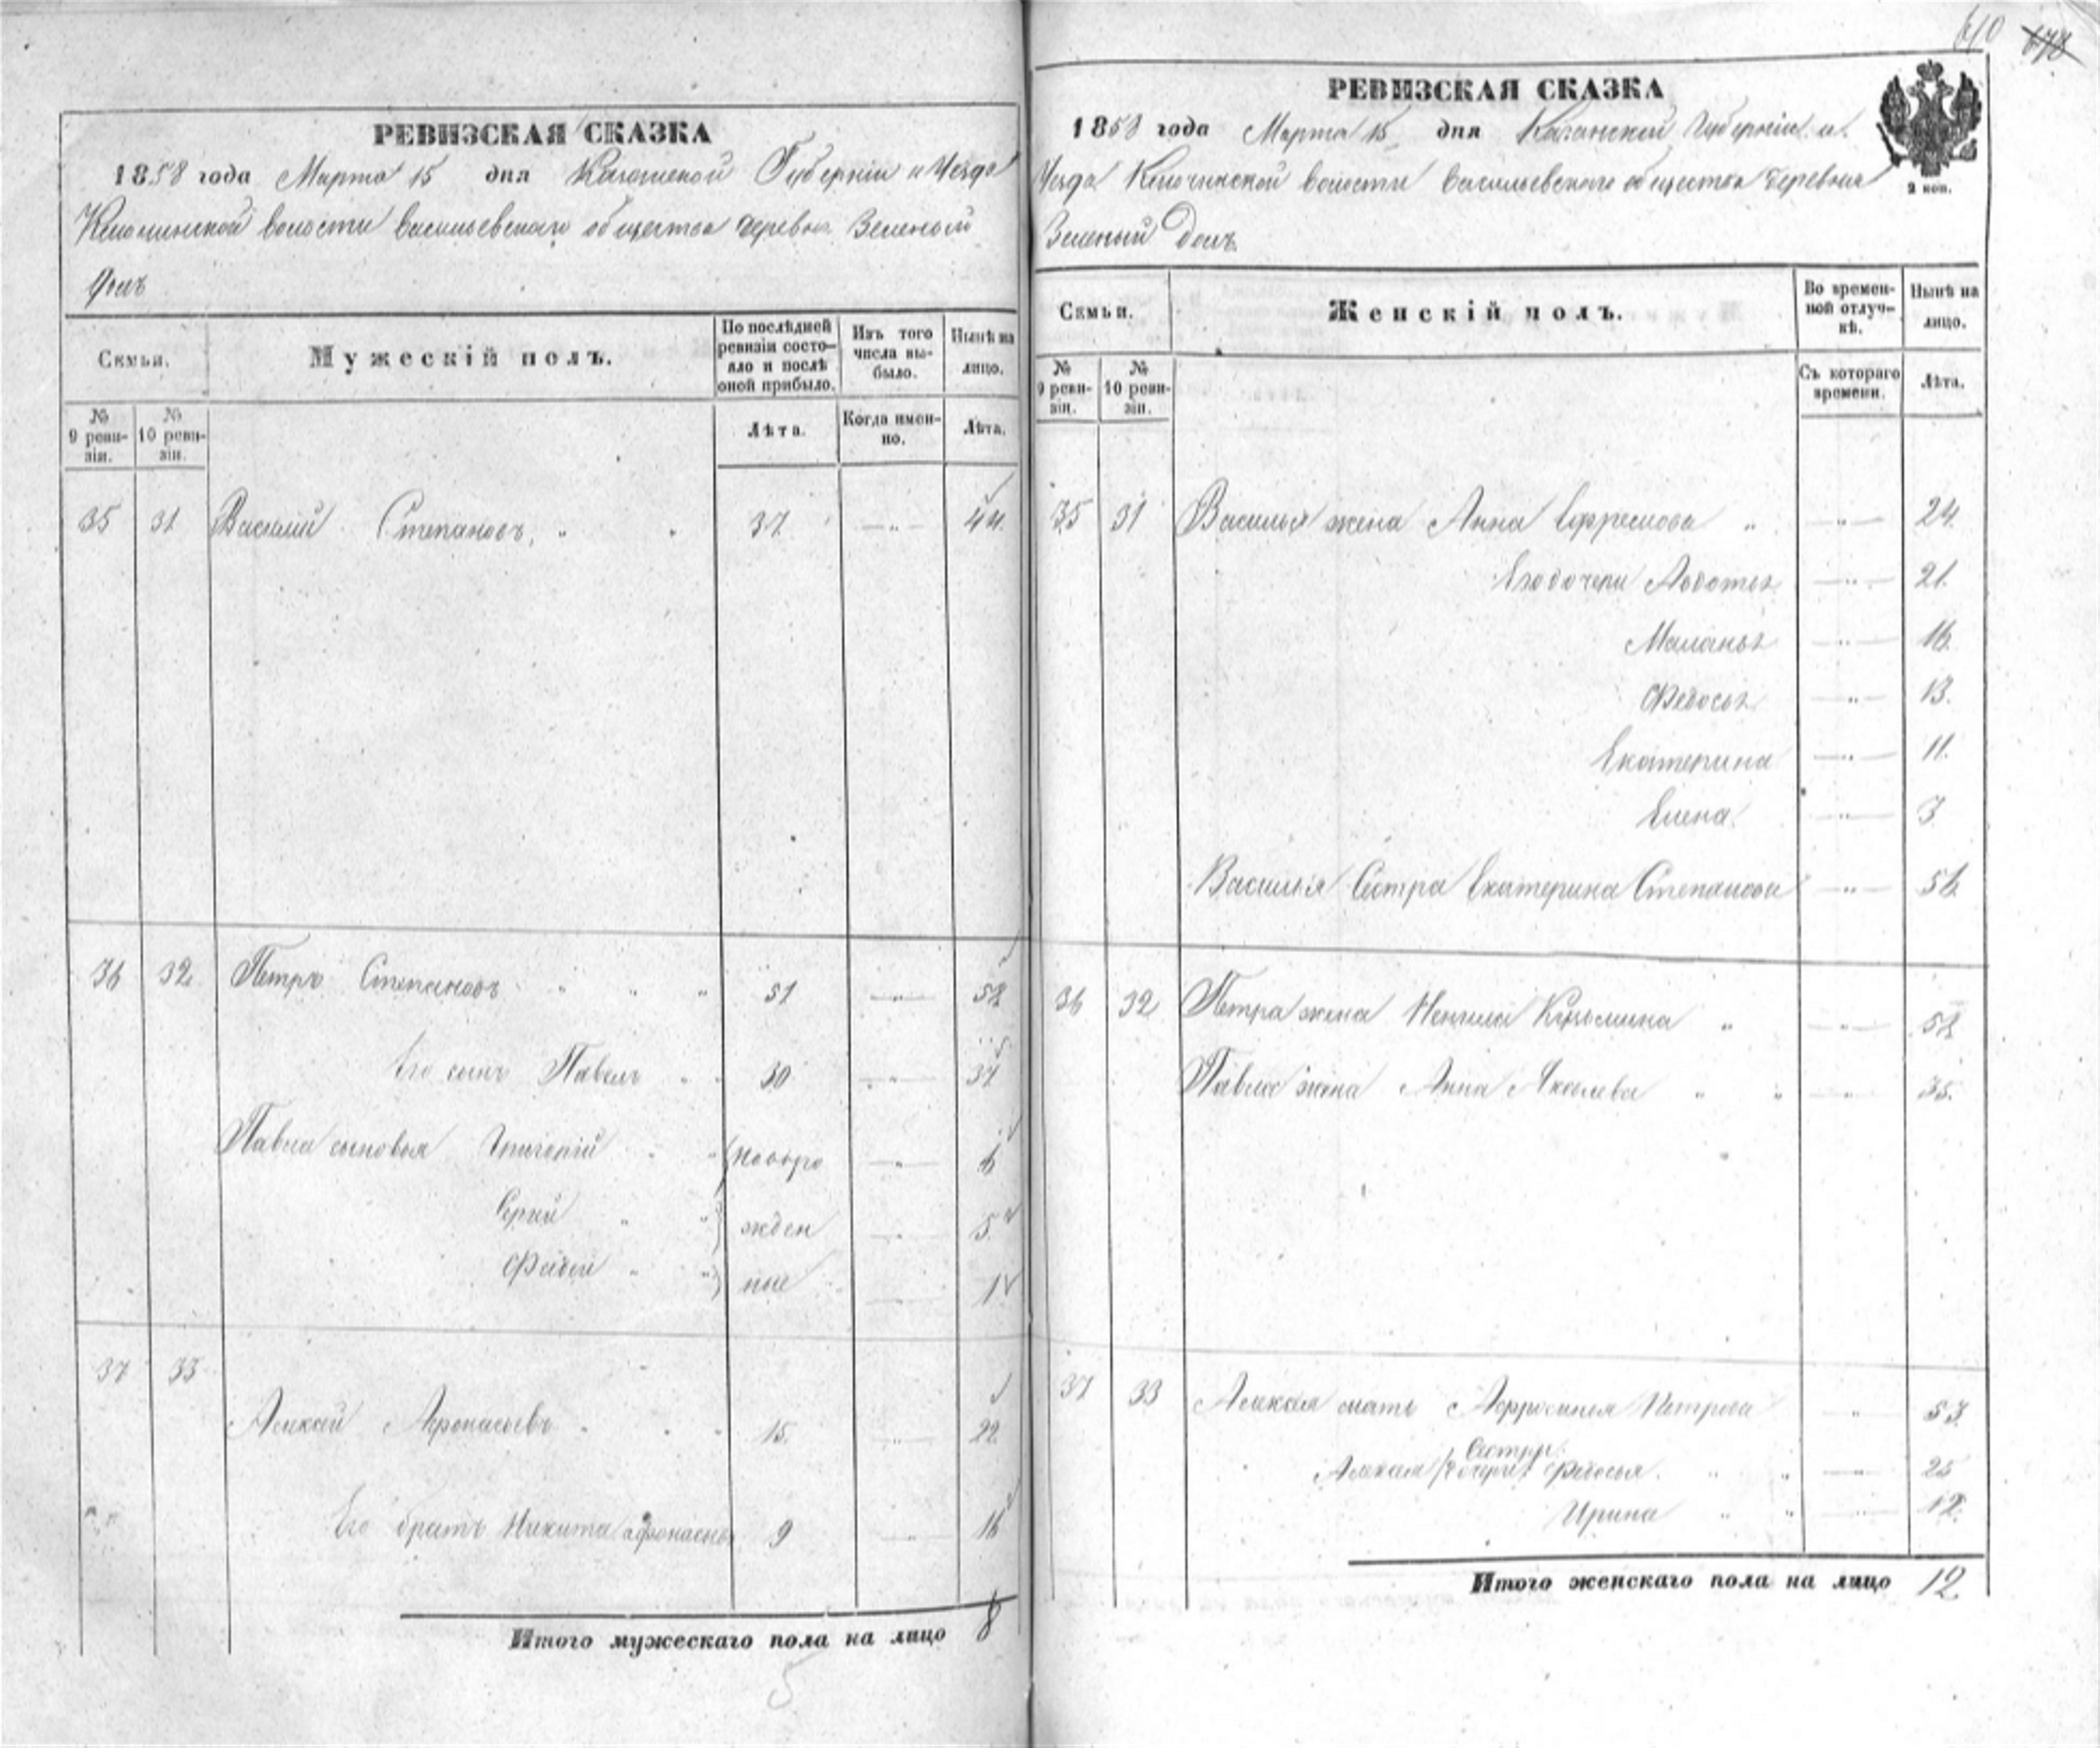 РЕВИЗСКАЯ СКАЗКА
1858 года Марта 15 дня Казанской Губерніи и Уезда
Ключинской волости Васильевскаго общества деревни Зеленый
Долъ
Семьи.
Мужескій полъ.
По послѣдней ревизіи состояло и послѣ оной прибыло.
Изъ того числа выбыло.
Нынѣ на лицо.
№ 9 ревизіи.
№ 10 ревизіи.
Лѣта.
Когда именно.
Лѣта.
35 31 Василий Степановъ 37 44
36 32 Петръ Степановъ 51 58
Его сынъ Павелъ 30 37
Павла сыновья Григорій новоро 6
Сергій жден 5
ные 1
37 33
Афонасьевъ 15 22
Его братъ Никита афонасьевъ 9 16
Итого мужескаго пола на лицо 8
5
610 678
РЕВИЗСКАЯ СКАЗКА
1858 года Марта 15 дня Казанской Губерніи и
Уезда Ключинской волости Васильевскаго общества деревни
Зеленый Долъ
2 коп.
Семьи.
Женскій полъ.
Во временной отлучкѣ.
Нынѣ на лицо.
№ 9 ревизіи.
№ 10 ревизіи.
Съ котораго времени.
Лѣта.
35 31 Василья жена Анна Ефремова 24
Его дочери Авдотья 21
Маланья 16
Федосья 13
Екатерина 11
Елена 3
Василья Сестра Екатерина Степанова 56
36 32 Петра жена Ненила Кузьмина 58
Павла жена Анна Яковлева 35
37 33 мать Афросинья Петрова 53
Сестры
дочери Федосья 25
Ирина 12
Итого женскаго пола на лицо 12